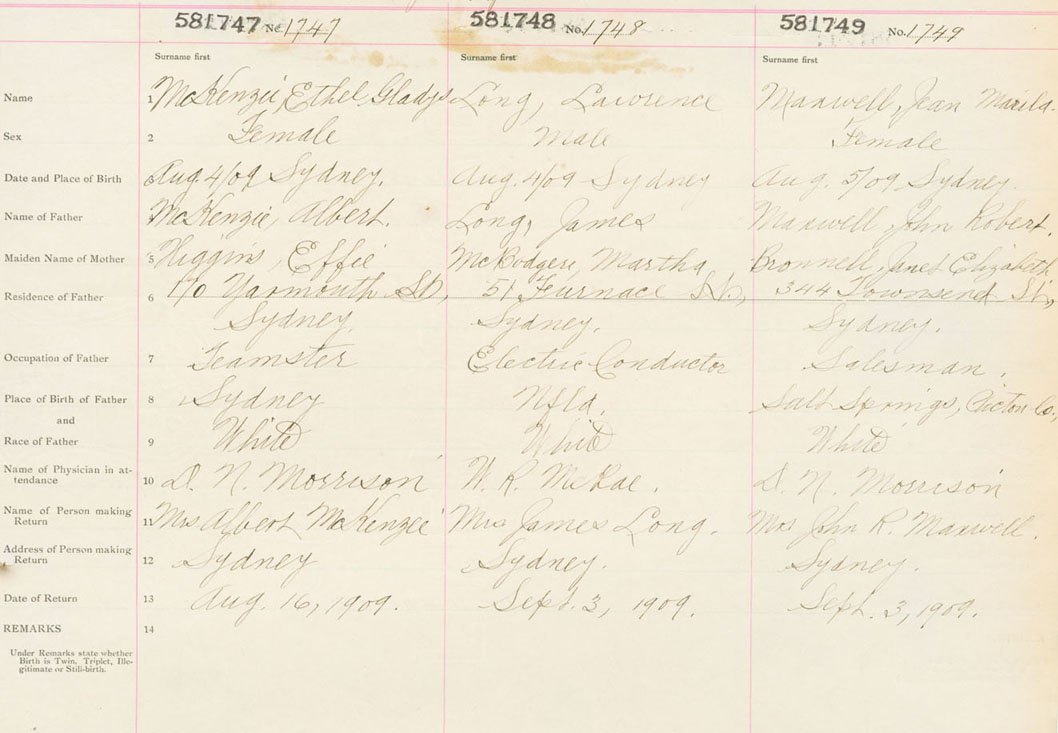 581747 No. 1747 581748 No. 1748 581749 No. 1749
Surname first Surname first Surname first
Name 1 McKenzie, Ethel Gladys Long, Lawrence Maxwell, Jean
Sex 2 Female Male Female
Date and Place of Birth Aug. 4/09 Sydney. Aug. 4/09 Sydney Aug. 5/09. Sydney.
Name of Father McKenzie, Albert. Long, James Maxwell, John Robert.
Maiden Name of Mother 5 Higgins, Effie Martha Janet Elizabeth
Residence of Father 6 Yarmouth St, 51 Furnace St, 344 Townsend St,
Sydney. Sydney. Sydney.
Occupation of Father 7 Teamster Electric Conductor Salesman.
Place of Birth of Father 8 Sydney Nfld. Salt Springs, Pictou Co.,
and
Race of Father 9 White White White
Name of Physician in at-
tendance 10 D. N. Morrison W. R. McRae. D. N. Morrison
Name of Person making
Return 11 Mrs Albert McKenzie Mrs James Long. Mrs John R. Maxwell.
Address of Person making
Return 12 Sydney Sydney. Sydney.
Date of Return 13 Aug. 16, 1909. Sept. 3, 1909. Sept. 3, 1909.
REMARKS 14
Under Remarks state whether
Birth is Twin, Triplet, Ille-
gitimate or Still-birth.